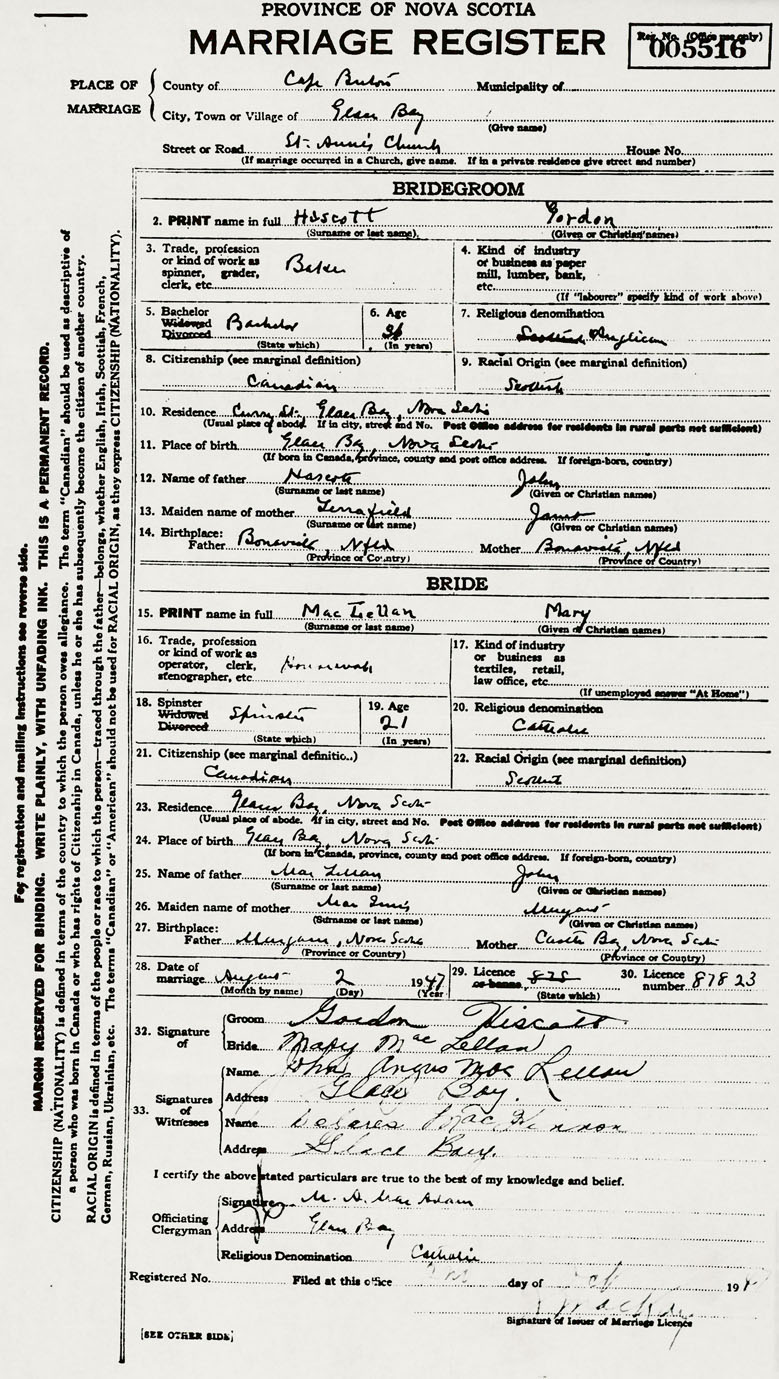 PROVINCE OF NOVA SCOTIA
MARRIAGE REGISTER
Reg. No. (Office use only)
005516
PLACE OF MARRIAGE
County of Cape Breton Municipality of
City, Town or Village of Glace Bay
(Give name)
Street or Road St. Anne's Church House No.
(If marriage occurred in a Church, give name. If in a private residence give street and number)
BRIDEGROOM
2. PRINT name in full Hiscott Gordon
(Surname or last name) (Given or Christian names)
3. Trade, profession or kind of work as spinner, grader, clerk, etc. Baker
4. Kind of industry or business as paper mill, lumber, bank, etc.
(If "labourer" specify kind of work above)
5. Bachelor Widowed Divorced Bachelor
(State which)
6. Age 36
(In years)
7. Religious denomination Anglican
8. Citizenship (see marginal definition)
Canadian
9. Racial Origin (see marginal definition)
Scottish
10. Residence Curry St., Glace Bay, Nova Scotia
(Usual place of abode. If in city, street and No. Post Office address for residents in rural parts not sufficient)
11. Place of birth Glace Bay Nova Scotia
(If born in Canada, province, county and post office address. If foreign-born, country)
12. Name of father Hiscott John
(Surname or last name) (Given or Christian names)
13. Maiden name of mother
(Surname or last name) (Given or Christian names)
14. Birthplace:
Father Nfld Mother Nfld
(Province or Country) (Province or Country)
BRIDE
15. PRINT name in full MacLellan Mary
(Surname or last name) (Given or Christian names)
16. Trade, profession or kind of work as operator, clerk, stenographer, etc.
17. Kind of industry or business as textiles, retail, law office, etc.
(If unemployed answer "At Home")
18. Spinster Widowed Divorced Spinster
(State which)
19. Age
21
(In years)
20. Religious denomination
Catholic
21. Citizenship (see marginal definition)
Canadian
22. Racial Origin (see marginal definition)
Scottish
23. Residence Glace Bay, Nova Scotia
(Usual place of abode. If in city, street and No. Post Office address for residents in rural parts not sufficient)
24. Place of birth Glace Bay, Nova Scotia
(If born in Canada, province, county and post office address. If foreign-born, country)
25. Name of father MacLellan John
(Surname or last name) (Given or Christian names)
26. Maiden name of mother MacInnis Margaret
(Surname or last name) (Given or Christian names)
27. Birthplace:
Father Margaree, Nova Scotia Mother Castle Bay, Nova Scotia
(Province or Country) (Province or Country)
28. Date of marriage August 2 1947
(Month by name) (Day) (Year)
29. Licence or banns
(State which)
30. Licence number 87823
32. Signature of
Groom Gordon Hiscott
Bride Mary MacLellan
33. Signatures of Witnesses
Name John Angus MacLellan
Address Glace Bay.
Name
Address Glace Bay.
I certify the above stated particulars are true to the best of my knowledge and belief.
Officiating Clergyman
Signature M. A. MacAdam
Address Glace Bay
Religious Denomination Catholic
Registered No. Filed at this office day of 19
Signature of Issuer of Marriage Licence
[SEE OTHER SIDE]
For registration and mailing instructions see reverse side.
MARGIN RESERVED FOR BINDING. WRITE PLAINLY, WITH UNFADING INK. THIS IS A PERMANENT RECORD.
CITIZENSHIP (NATIONALITY) is defined in terms of the country to which the person owes allegiance. The term "Canadian" should be used as descriptive of
a person who was born in Canada or who has rights of Citizenship in Canada, unless he or she has subsequently become the citizen of another country.
RACIAL ORIGIN is defined in terms of the people or race to which the person—traced through the father—belongs, whether English, Irish, Scottish, French,
German, Russian, Ukrainian, etc. The terms "Canadian" or "American" should not be used for RACIAL ORIGIN, as they express CITIZENSHIP (NATIONALITY).